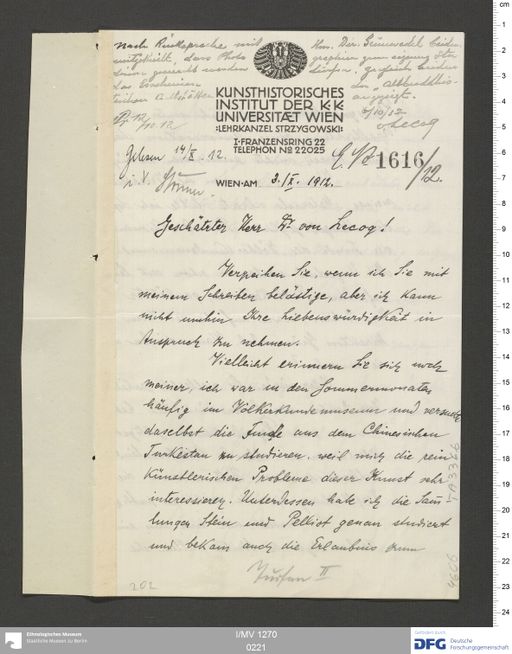 nach Rücksprache mit Hrn. Dir. Grünwedel
mitgeteilt, dass Photo
gemacht werden dürfen,
das Erscheinen der "Altbuddhis-
tischen Kultstätten" angezeigt.
12/10 12
5/10/12
vLecoq
KUNSTHISTORISCHES
INSTITUT DER K·K
UNIVERSITÆT WIEN
:LEHRKANZEL STRZYGOWSKI:
I·FRANZENSRING 22
TELEPHON No 22025
Gelesen 14/X. 12.
i. V.
E. No 1616/12.
WIEN·AM 3./X. 1912.
Geschätzter Herr Dr von Lecoq!
Verzeihen Sie, wenn ich Sie mit
meinem Schreiben belästige, aber ich kann
nicht umhin Ihre Liebenswürdigkeit in
Anspruch zu nehmen.
Vielleicht erinnern Sie sich noch
meiner, ich war in den Sommermonaten
häufig im Völkerkundemuseum und versuchte
daselbst die Funde aus dem Chinesischen
Turkistan zu studieren, weil mich die rein
künstlerischen Probleme dieser Kunst sehr
interessieren. Unterdessen habe ich die Samm
lungen Stein und Pelliot genau studiert
und bekam auch die Erlaubnis zum
Turfan II
202
TA 3366
I/MV 1270
0221
Ethnologisches Museum
Staatliche Museen zu Berlin
Gefördert durch
DFG Deutsche
Forschungsgemeinschaft
cm
1
2
3
4
5
6
7
8
9
10
11
12
13
14
15
16
17
18
19
20
21
22
23
24